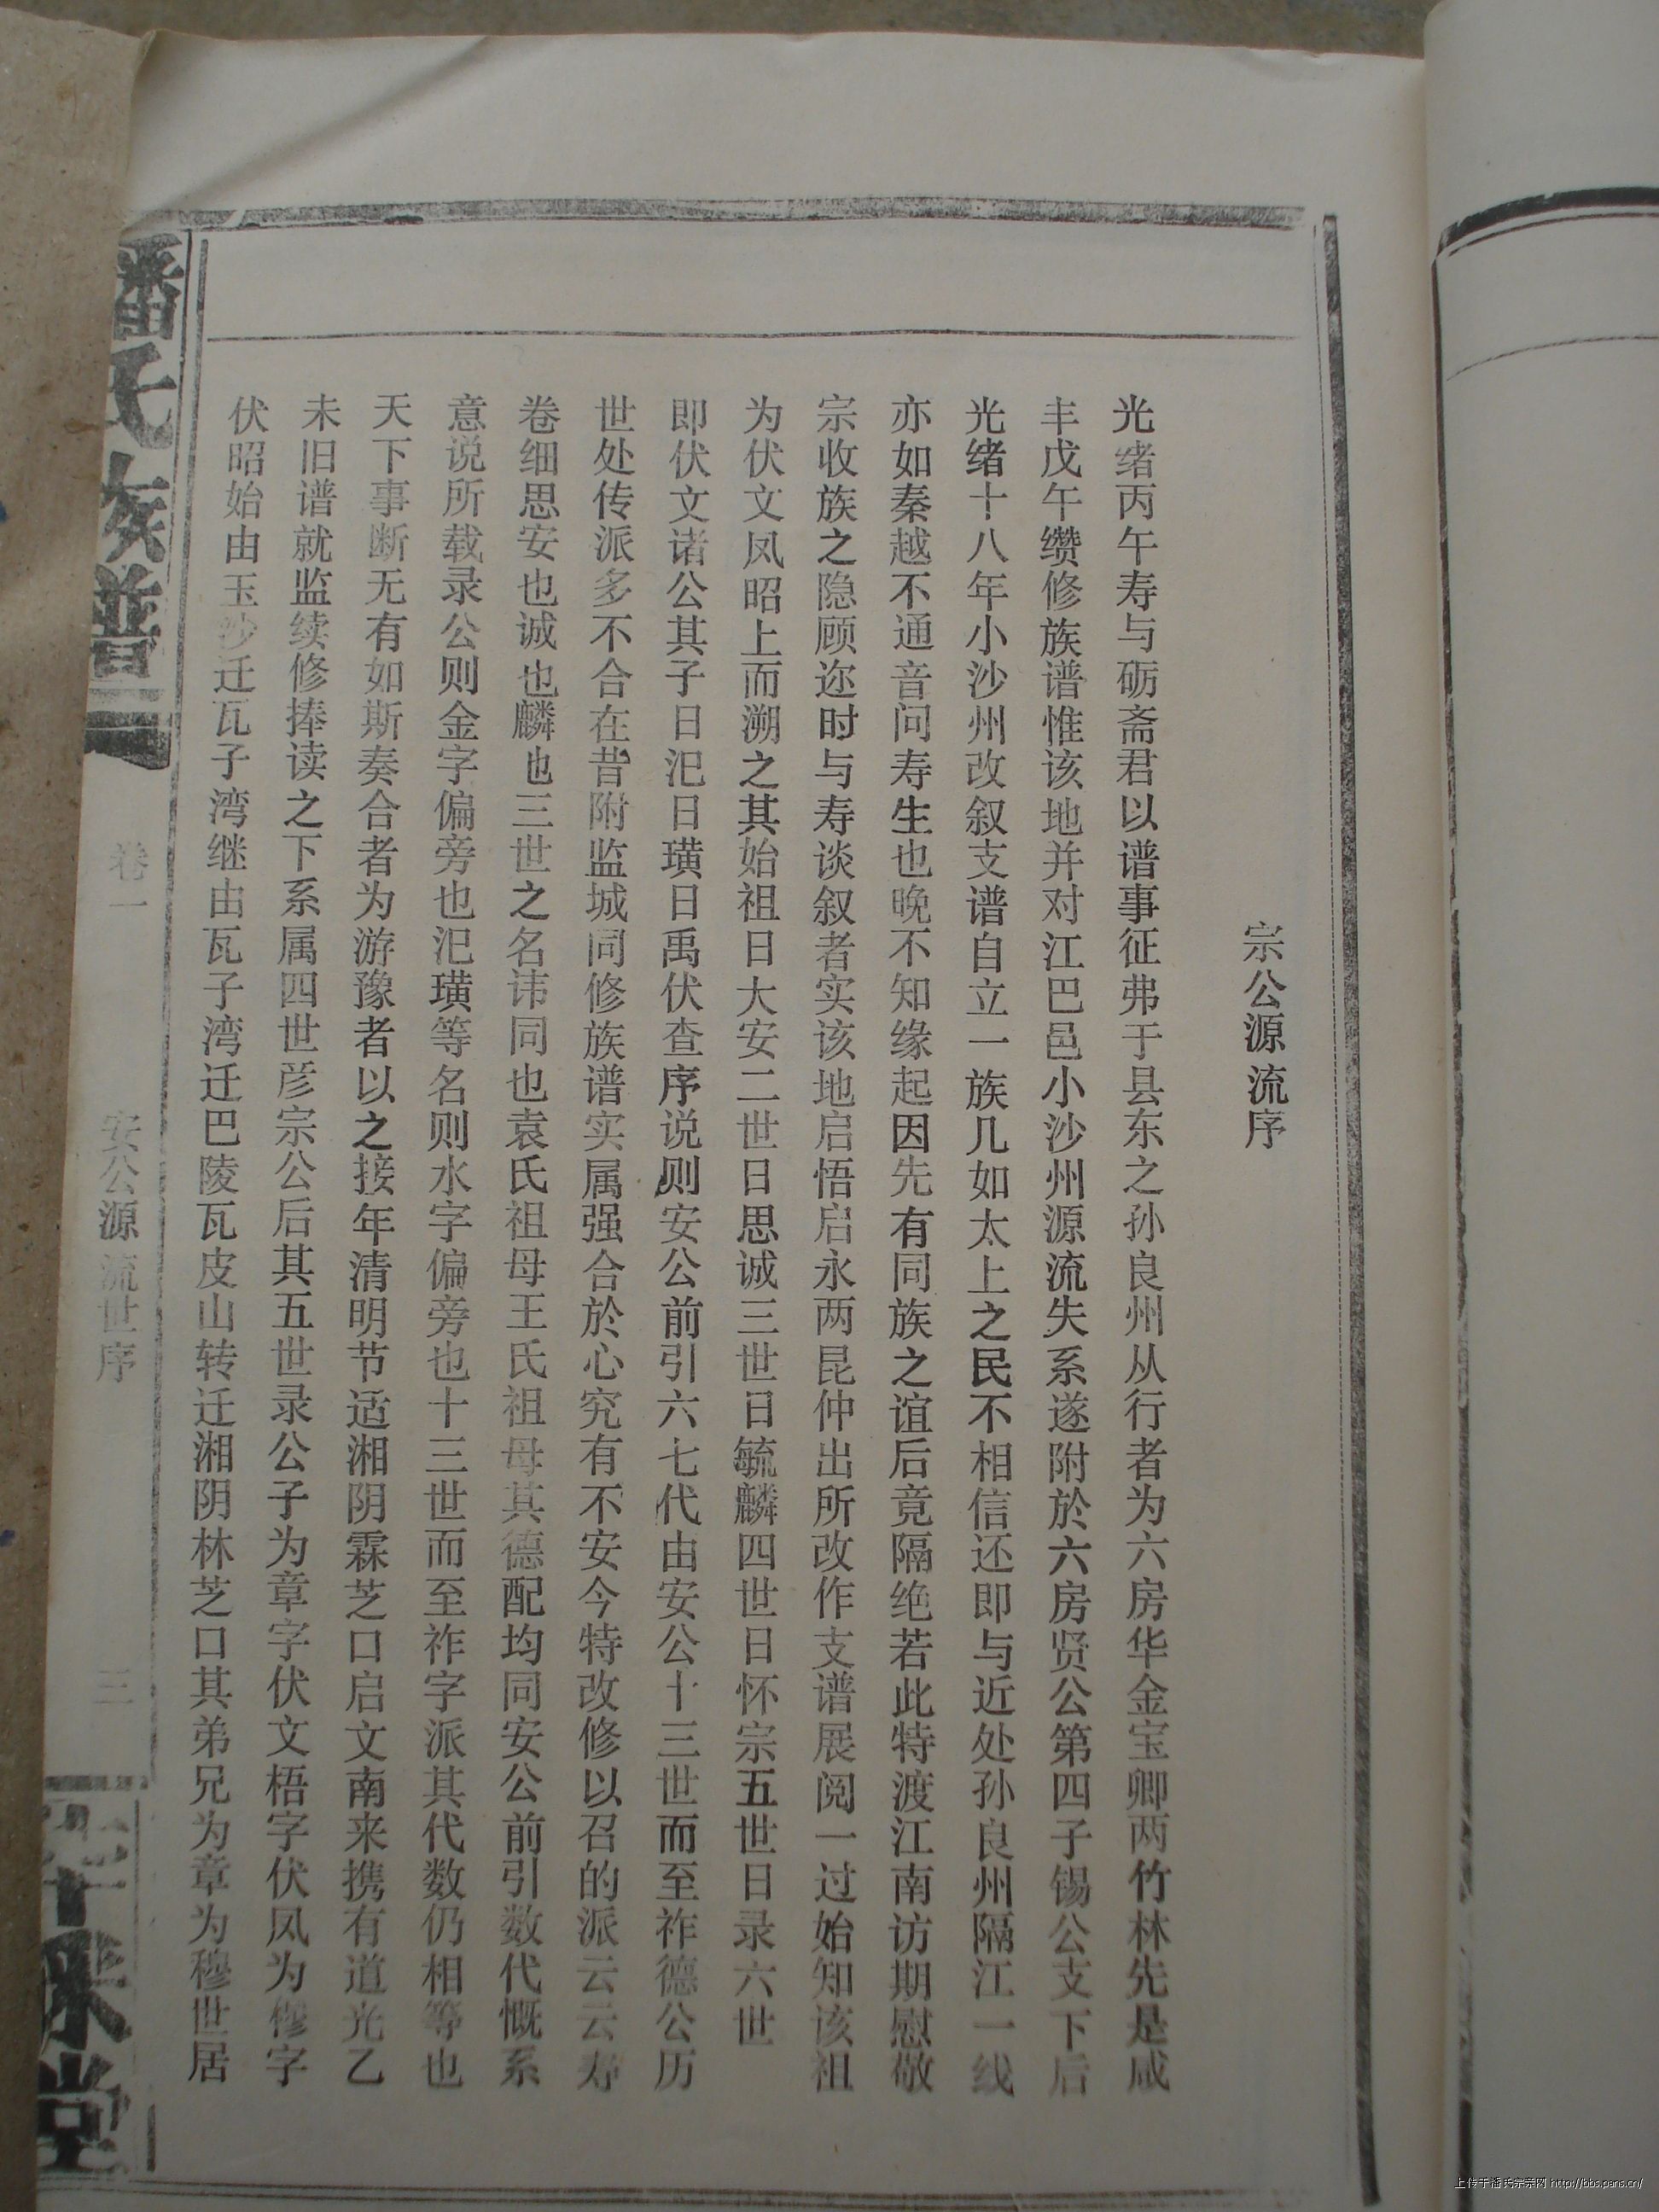 宗公源流序
光绪丙午寿与砺斋君以谱事征弗于县东之孙良州从行者为六房华金宝卿两竹林先是咸
丰戊午缵修族谱惟该地并对江巴邑小沙州源流失系遂附於六房贤公第四子锡公支下后
光绪十八年小沙州改叙支谱自立一族几如太上之民不相信还即与近处孙良州隔江一线
亦如秦越不通音问寿生也晚不知缘起因先有同族之谊后竟隔绝若此特渡江南访期慰敬
宗收族之隐顾迩时与寿谈叙者实该地启悟启永两昆仲出所改作支谱展阅一过始知该祖
为伏文凤昭上而溯之其始祖日大安二世日思诚三世日毓麟四世日怀宗五世日录六世
即伏文诸公其子日汜日璜日禹伏查序说则安公前引六七代由安公十三世而至祚德公历
世处传派多不合在昔附监城同修族谱实属强合於心究有不安今特改修以召的派云云寿
卷细思安也诚也麟也三世之名讳同也袁氏祖母王氏祖母其德配均同安公前引数代慨系
意说所载录公则金字偏旁也汜璜等名则水字偏旁也十三世而至祚字派其代数仍相等也
天下事断无有如斯奏合者为游豫者以之接年清明节适湘阴霖芝口启文南来携有道光乙
未旧谱就监续修捧读之下系属四世彦宗公后其五世录公子为章字伏文梧字伏凤为穆字
伏昭始由玉沙迁瓦子湾继由瓦子湾迁巴陵瓦皮山转迁湘阴林芝口其弟兄为章为穆世居
潘氏族谱
卷一
安公源流世序
三
堂
上传于潘氏宗亲网 http://bbs.pans.cn/